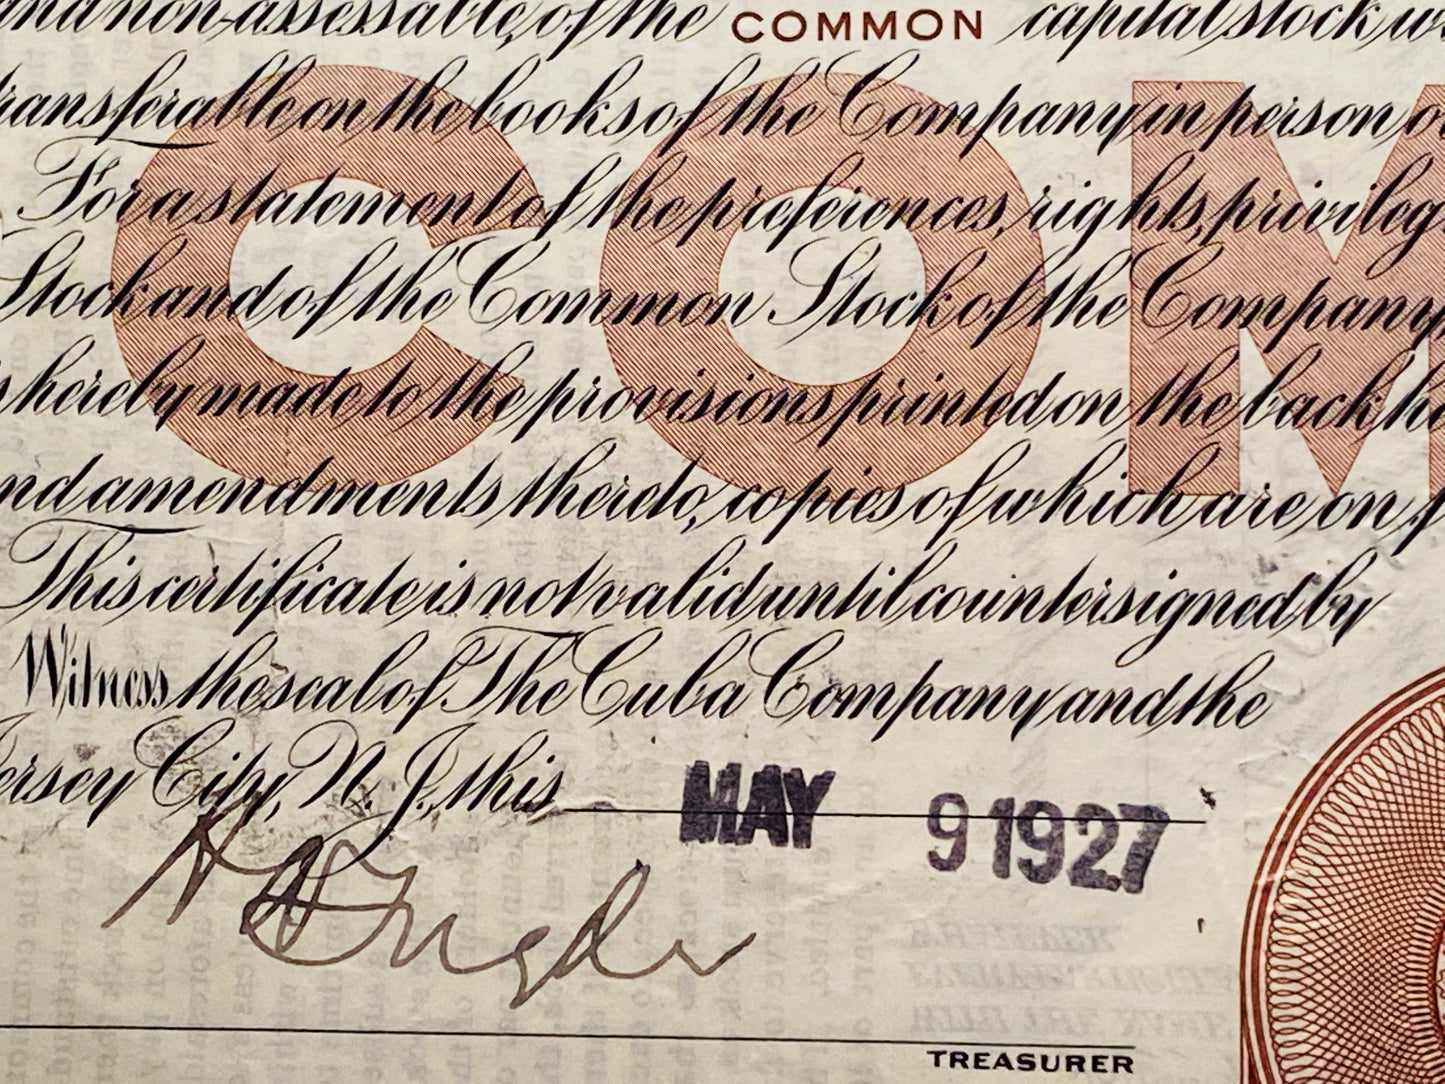 and non-assessable, of the COMMON capital stock
transferable on the books of the Company in person or
For a statement of the preferences, rights, privileg
Stock and of the Common Stock of the Company,
is hereby made to the provisions printed on the back he
and amendments thereto, copies of which are, on f
This certificate is not valid until countersigned by
Witness the seal of The Cuba Company and the
Jersey City, N. J., this MAY 9 1927
TREASURER